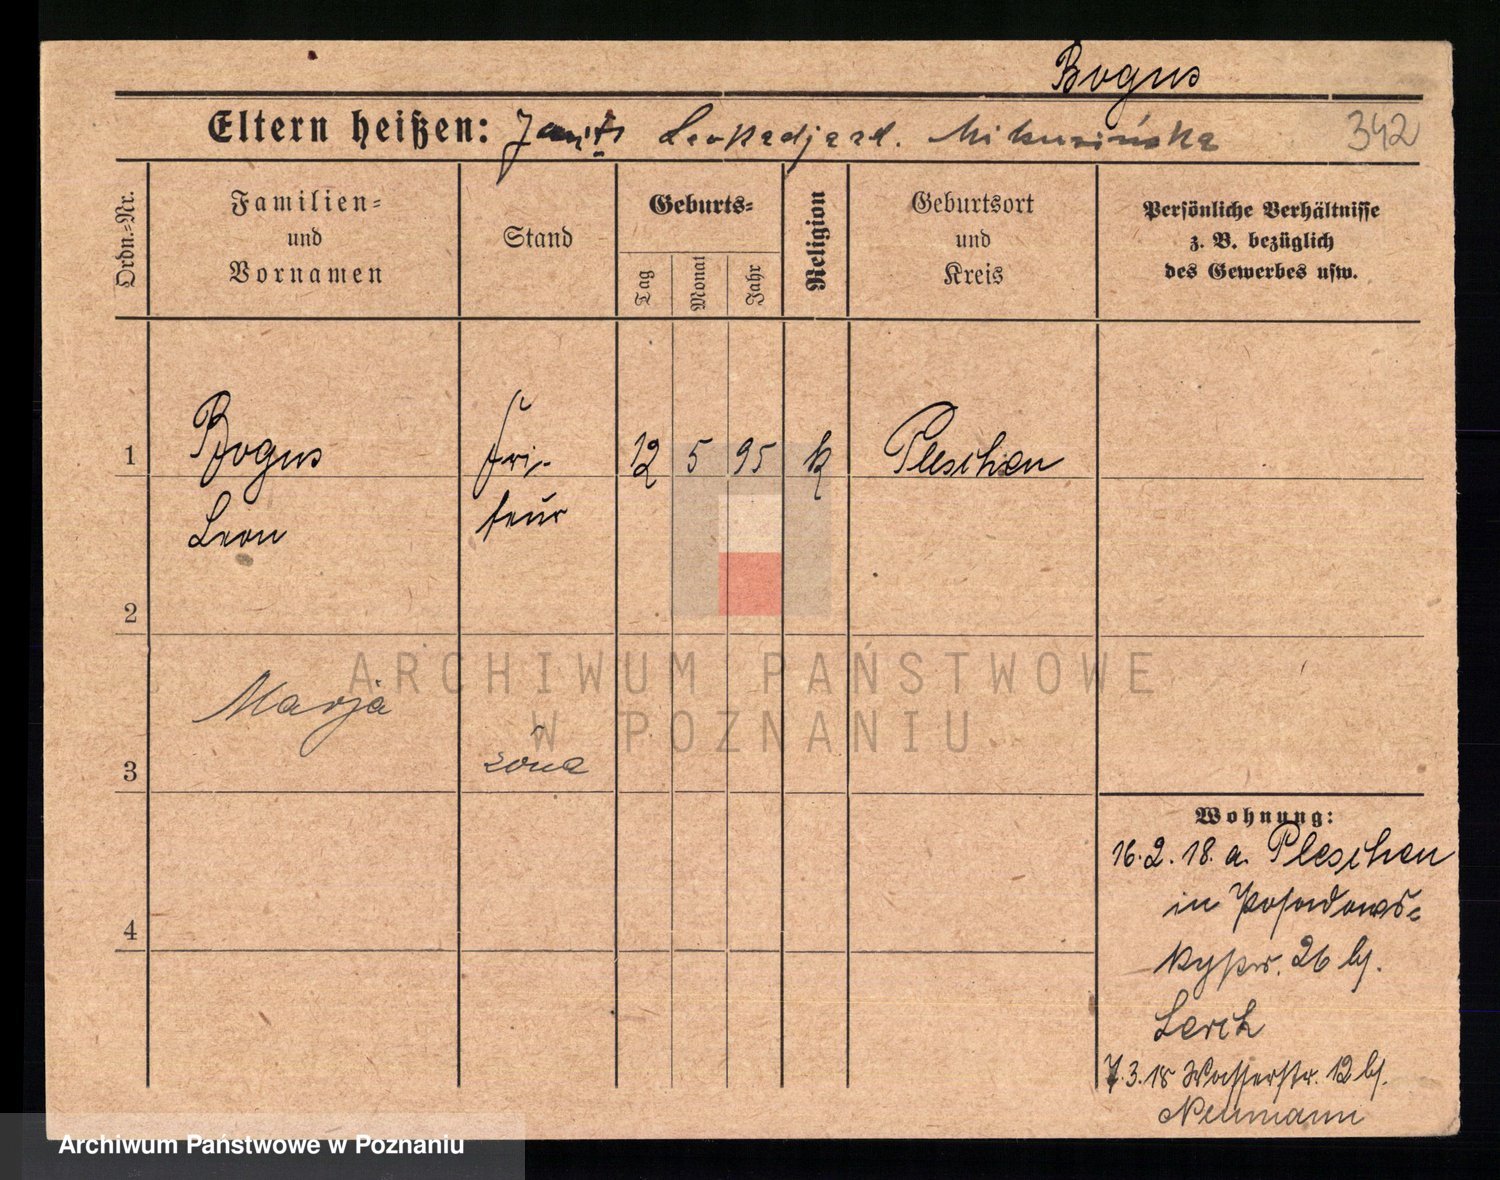 Bogus
Eltern heißen: Leokadja ad. Mikusińska
342
Ordn.-Nr.
Familien-
und
Vornamen
Stand
Geburts-
Tag
Monat
Jahr
Religion
Geburtsort
und
Kreis
Persönliche Verhältnisse
z. B. bezüglich
des Gewerbes usw.
1
Bogus
Fri-
12 5 95 k
Pleschen
Leon
seur
2
Marja
żona
3
4
Wohnung:
16.2.18. a. Pleschen
in Posadows-
kystr. 26 bj.
Lerch
7.3.18 Wasserstr. 12 bj.
Neumann
ARCHIWUM PAŃSTWOWE
W POZNANIU
Archiwum Państwowe w Poznaniu